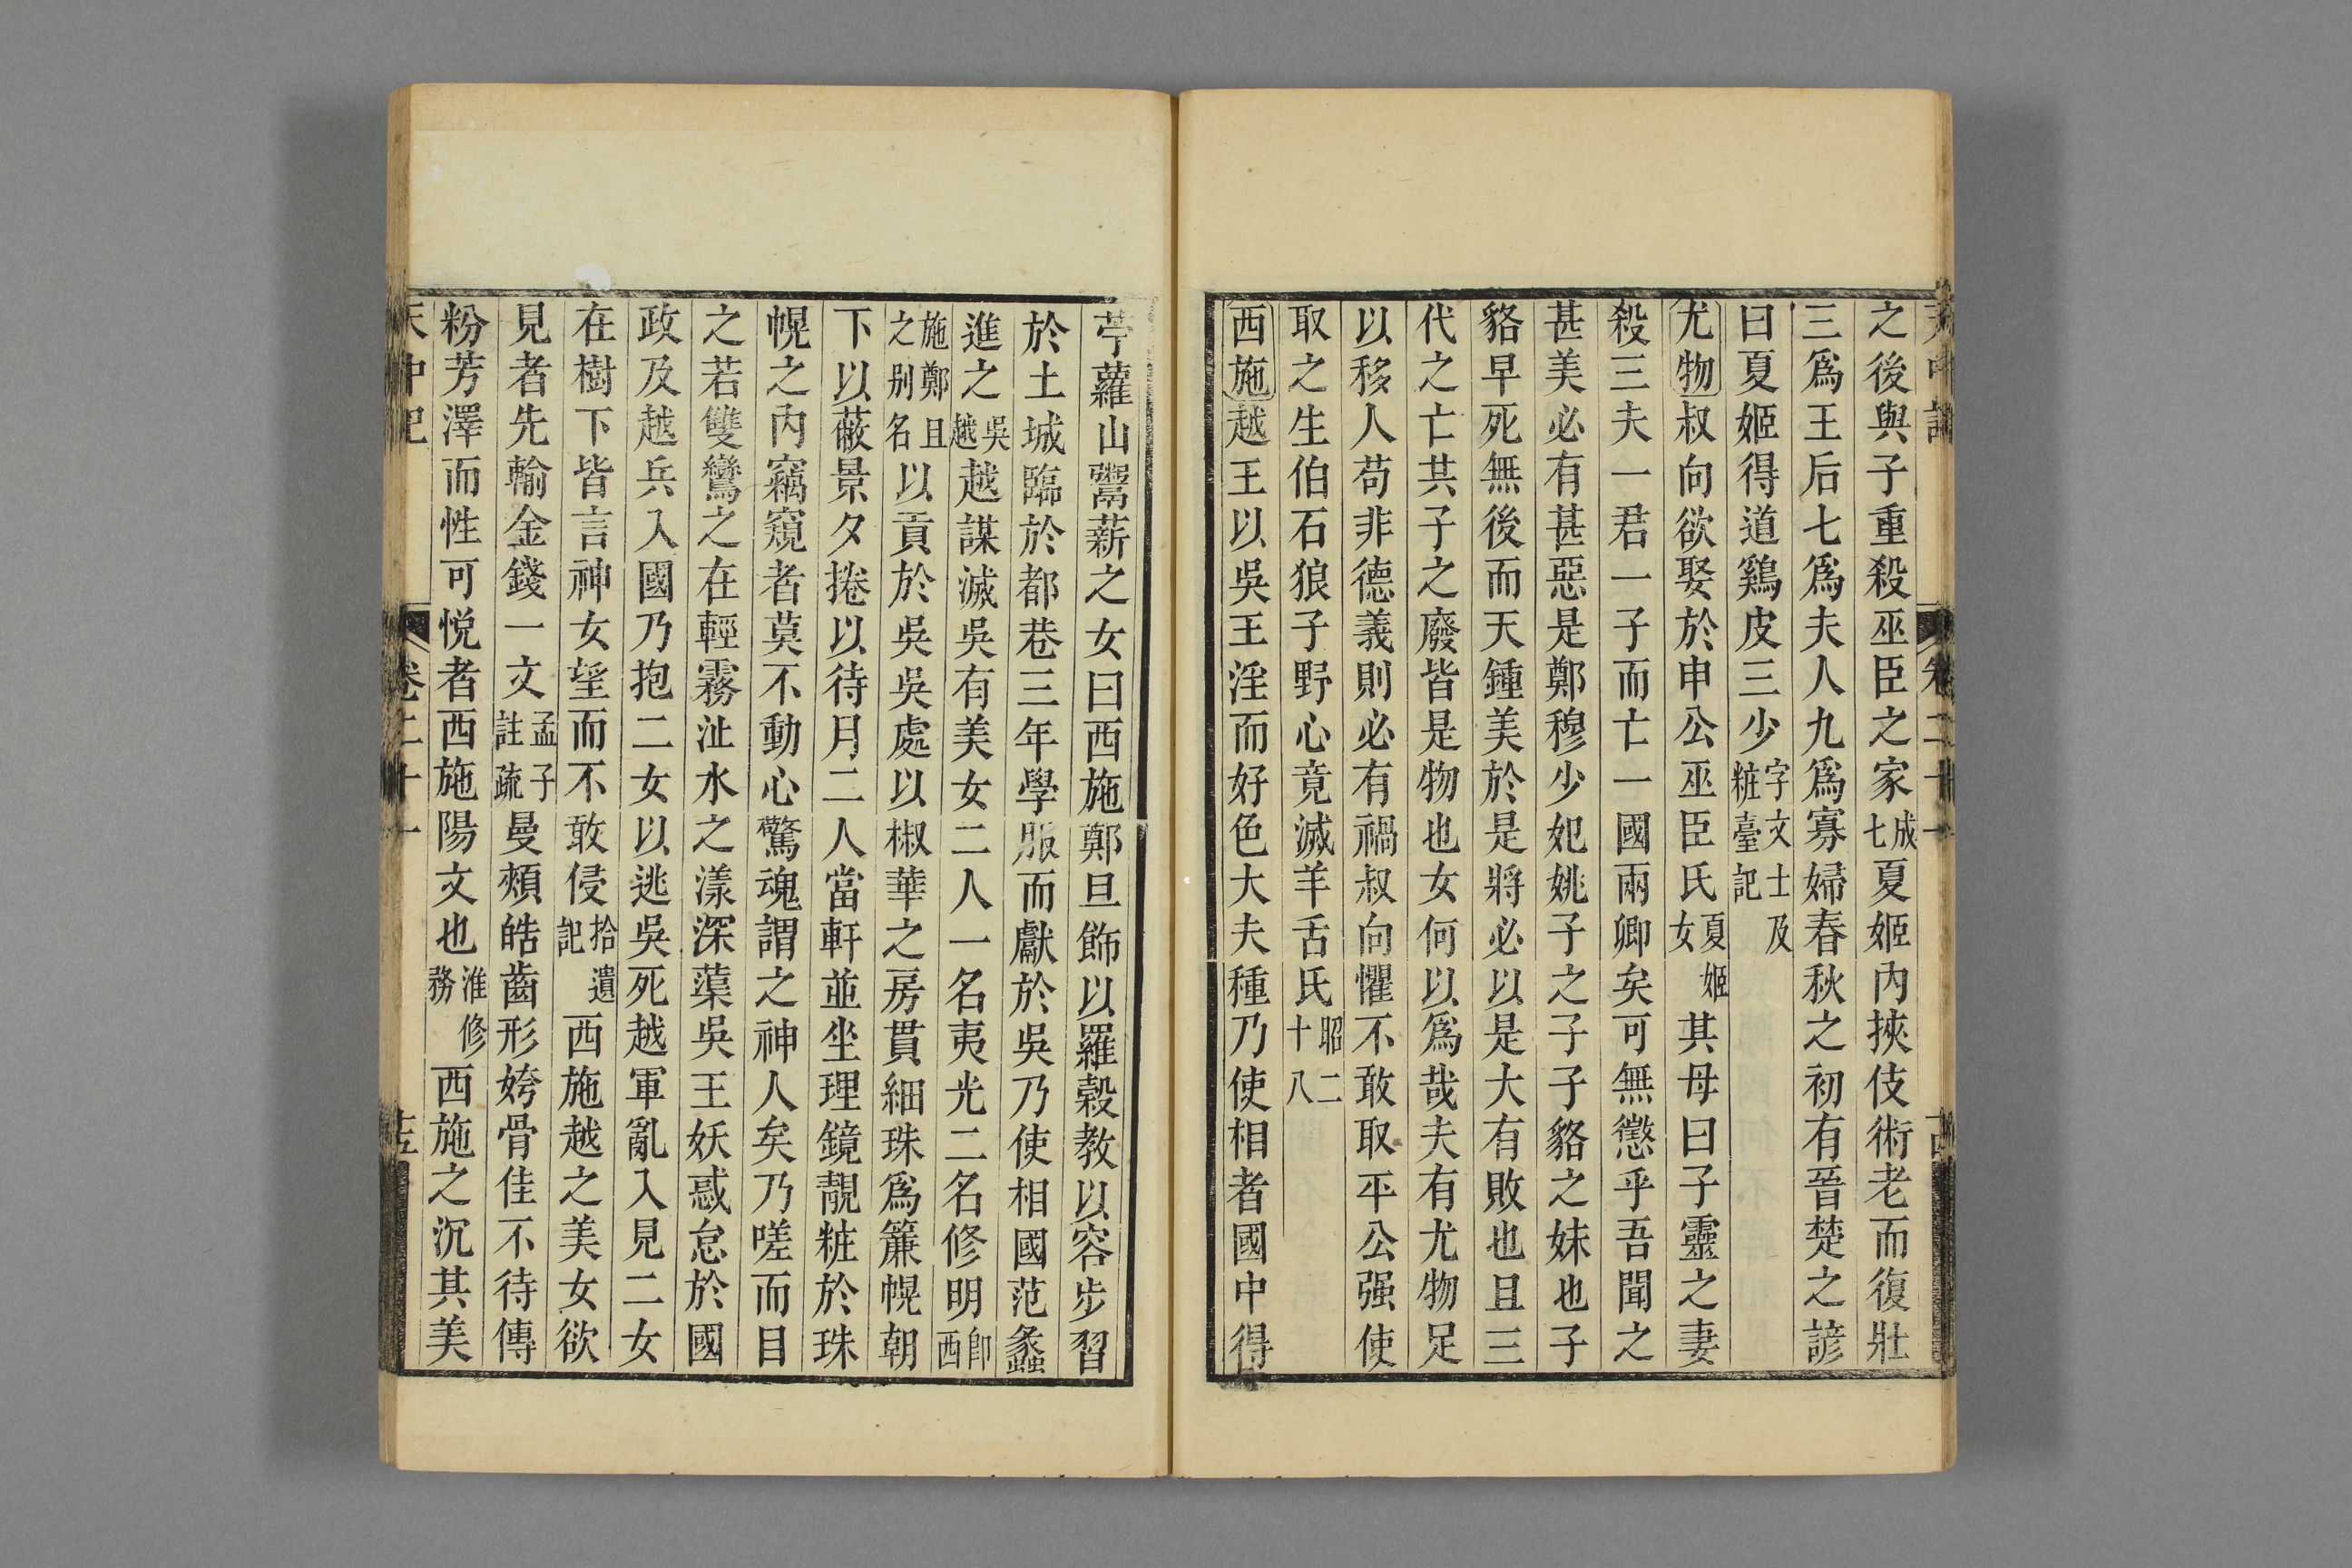 之後與子重殺巫臣之家成七夏姬內挾伎術老而復壯
三爲王后七爲夫人九爲寡婦春秋之初有晉楚之諺
曰夏姬得道鷄皮三少字文士及粧臺記
尤物叔向欲娶於申公巫臣氏夏姬女其母曰子靈之妻
殺三夫一君一子而亡一國兩卿矣可無懲乎吾聞之
甚美必有甚惡是鄭穆少妃姚子之子子貉之妹也子
貉早死無後而天鍾美於是將必以是大有敗也且三
代之亡共子之廢皆是物也女何以爲哉夫有尤物足
以移人苟非德義則必有禍叔向懼不敢取平公强使
取之生伯石狼子野心竟滅羊舌氏昭二十八
西施越王以吳王淫而好色大夫種乃使相者國中得
苧蘿山鬻薪之女曰西施鄭旦飾以羅縠教以容步習
於土城臨於都巷三年學服而獻於吳乃使相國范蠡
進之吳越越謀滅吳有美女二人一名夷光二名修明卽西
施鄭旦之别名以貢於吳吳處以椒華之房貫細珠爲簾幌朝
下以蔽景夕捲以待月二人當軒並坐理鏡靚粧於珠
幌之內竊窺者莫不動心驚魂謂之神人矣乃嗟而目
之若雙鸞之在輕霧沚水之漾深蕖吳王妖惑怠於國
政及越兵入國乃抱二女以逃吳死越軍亂入見二女
在樹下皆言神女望而不敢侵拾遺記西施越之美女欲
見者先輸金錢一文孟子註疏曼頰皓齒形姱骨佳不待傳
粉芳澤而性可悅者西施陽文也淮修務西施之沉其美
天中記 卷二十一